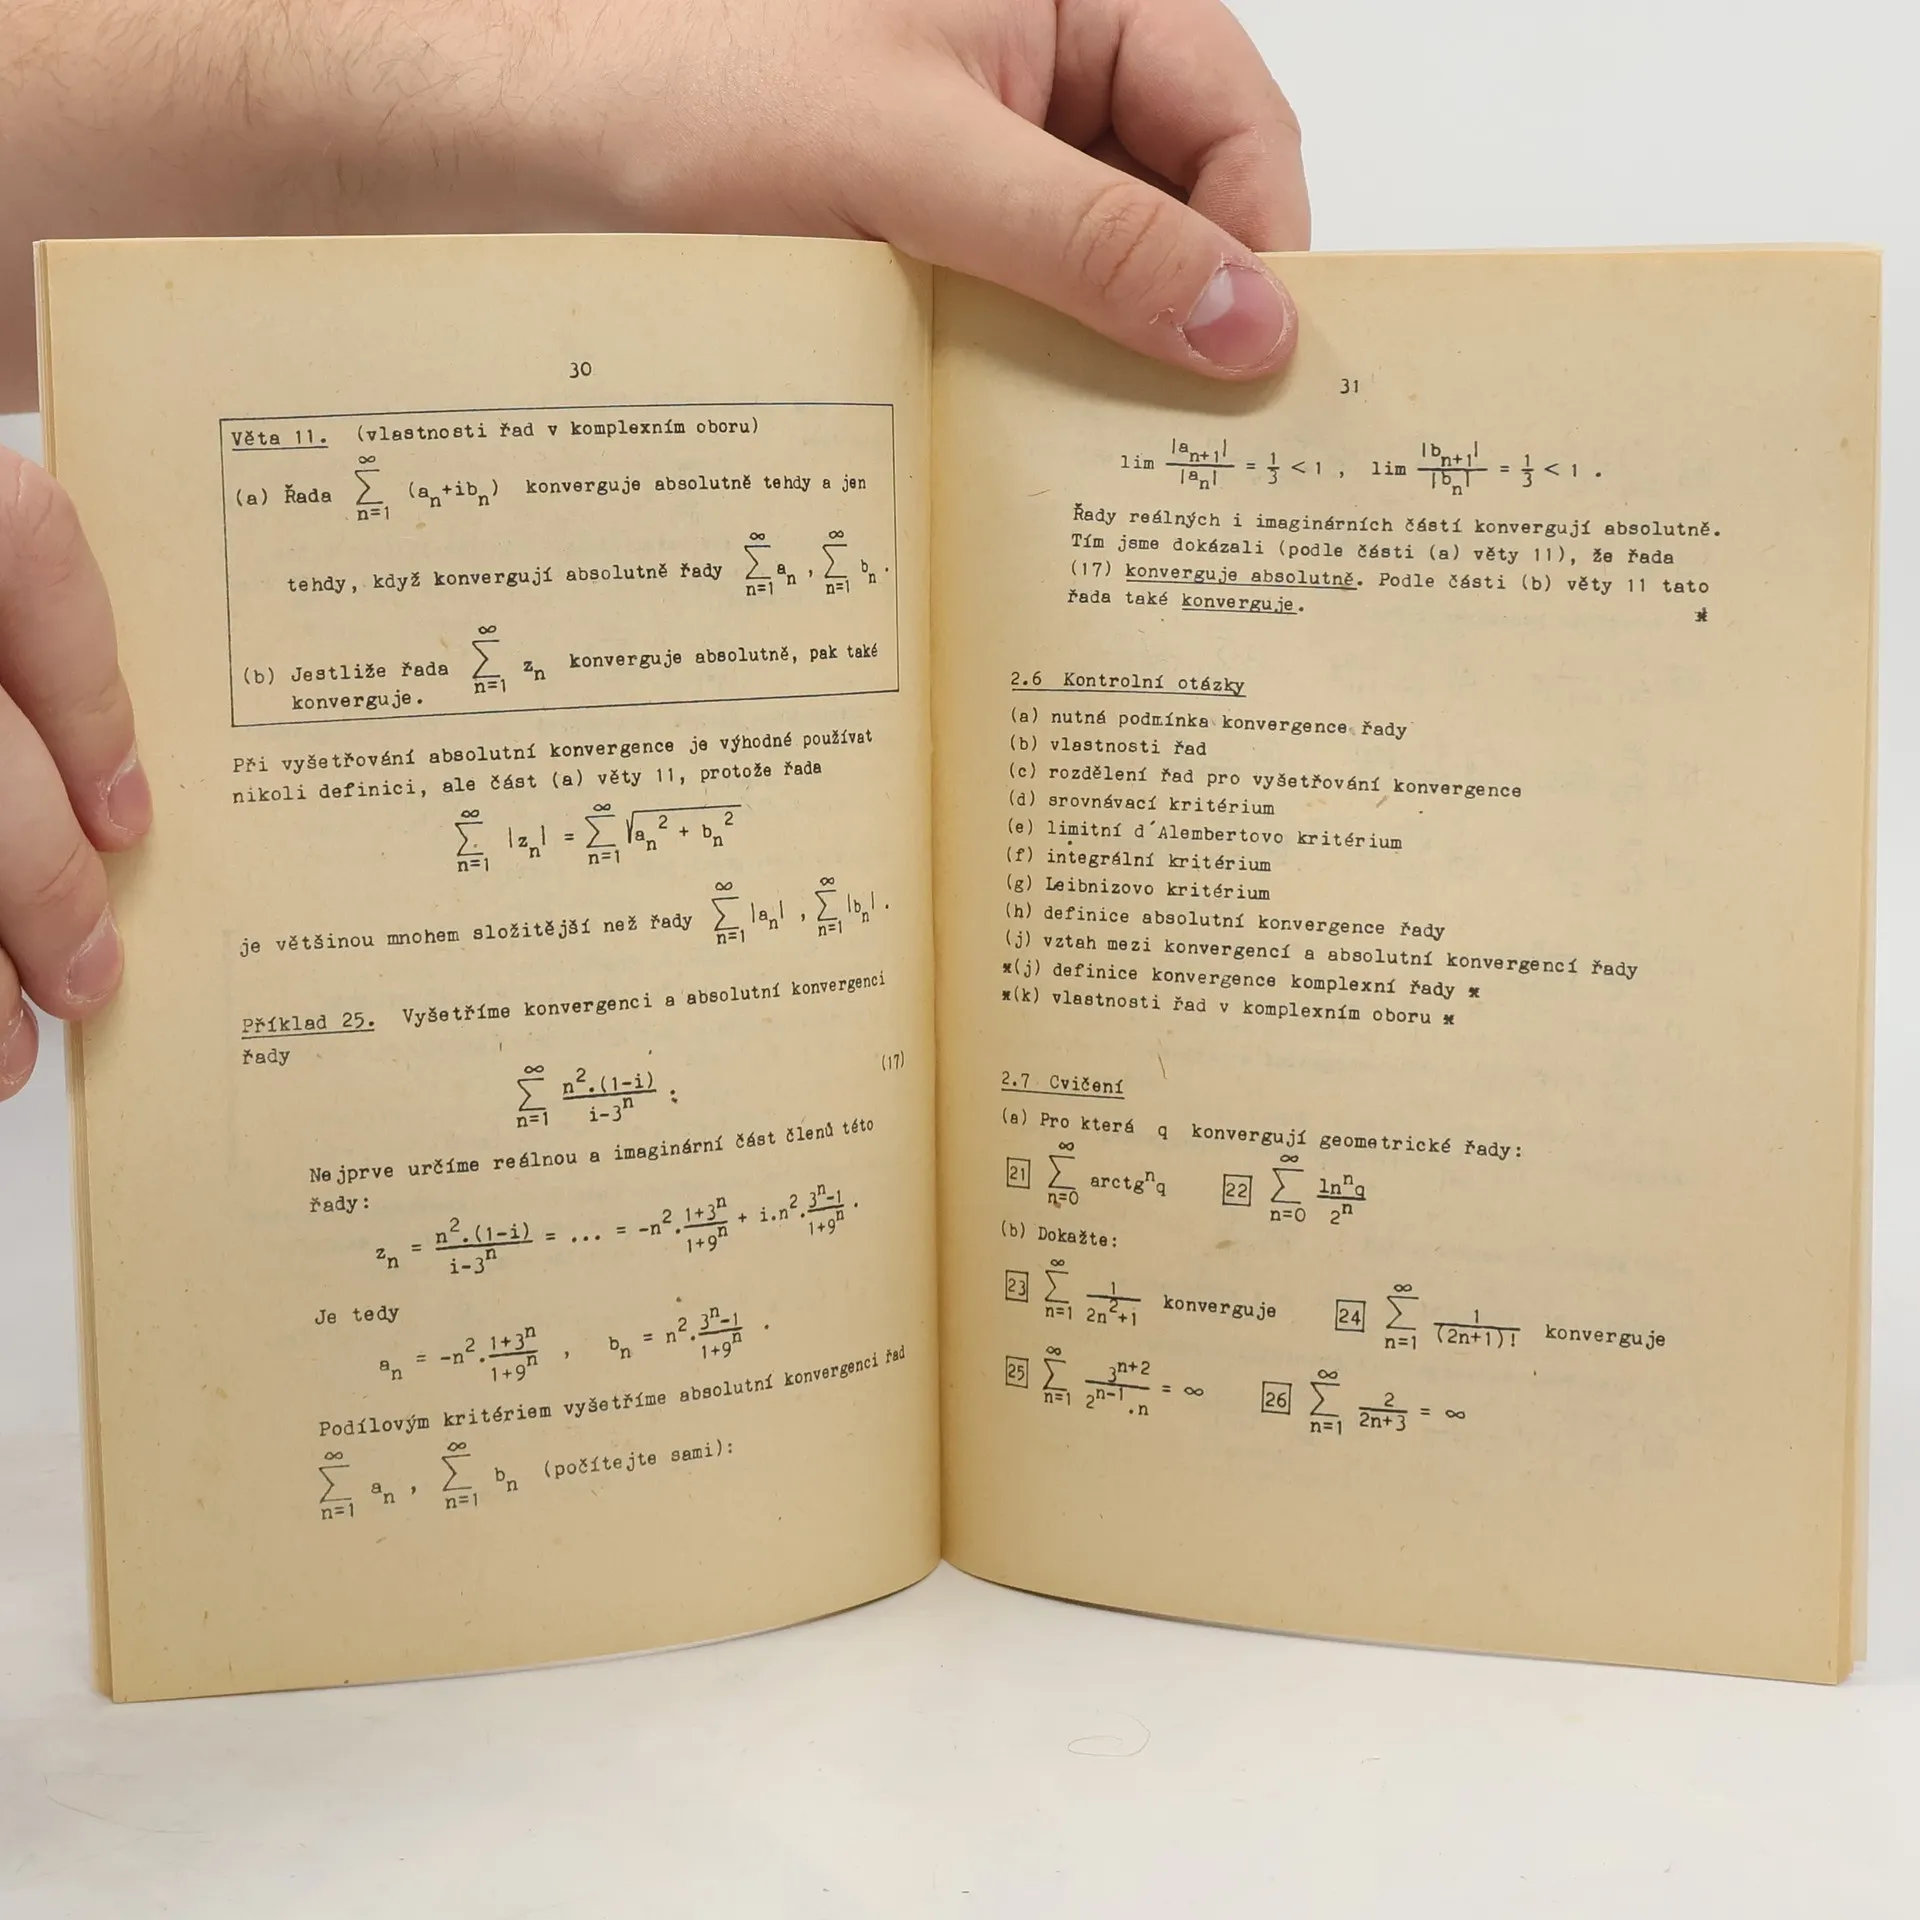 30
Věta 11. (vlastnosti řad v komplexním oboru)
(a) Řada ∞∑n=1 (aₙ+ibₙ) konverguje absolutně tehdy a jen
tehdy, když konvergují absolutně řady ∞∑n=1 aₙ , ∞∑n=1 bₙ .
(b) Jestliže řada ∞∑n=1 zₙ konverguje absolutně, pak také
konverguje.
Při vyšetřování absolutní konvergence je výhodné používat
nikoli definici, ale část (a) věty 11, protože řada
∞∑n=1 |zₙ| = ∞∑n=1 √(aₙ² + bₙ²)
je většinou mnohem složitější než řady ∞∑n=1 |aₙ| , ∞∑n=1 |bₙ| .
Příklad 25. Vyšetříme konvergenci a absolutní konvergenci
řady
∞∑n=1 n².(1-i) / i-3ⁿ : (17)
Nejprve určíme reálnou a imaginární část členů této
řady:
zₙ = n².(1-i) / i-3ⁿ = ... = -n². 1+3ⁿ / 1+9ⁿ + i.n². 3ⁿ-1 / 1+9ⁿ .
Je tedy
aₙ = -n². 1+3ⁿ / 1+9ⁿ , bₙ = n². 3ⁿ-1 / 1+9ⁿ .
Podílovým kritériem vyšetříme absolutní konvergenci řad
∞∑n=1 aₙ , ∞∑n=1 bₙ (počítejte sami):
31
lim |aₙ₊₁| / |aₙ| = 1/3 < 1 , lim |bₙ₊₁| / |bₙ| = 1/3 < 1 .
Řady reálných i imaginárních částí konvergují absolutně.
Tím jsme dokázali (podle části (a) věty 11), že řada
(17) konverguje absolutně. Podle části (b) věty 11 tato
řada také konverguje. *
2.6 Kontrolní otázky
(a) nutná podmínka konvergence řady
(b) vlastnosti řad
(c) rozdělení řad pro vyšetřování konvergence
(d) srovnávací kritérium
(e) limitní d´Alembertovo kritérium
(f) integrální kritérium
(g) Leibnizovo kritérium
(h) definice absolutní konvergence řady
(j) vztah mezi konvergencí a absolutní konvergencí řady
*(j) definice konvergence komplexní řady *
*(k) vlastnosti řad v komplexním oboru *
2.7 Cvičení
(a) Pro která q konvergují geometrické řady:
21 ∞∑n=0 arctgⁿq 22 ∞∑n=0 lnⁿq / 2ⁿ
(b) Dokažte:
23 ∞∑n=1 1 / 2n²+1 konverguje 24 ∞∑n=1 1 / (2n+1)! konverguje
25 ∞∑n=1 3ⁿ⁺² / 2ⁿ⁻¹.n = ∞ 26 ∞∑n=1 2 / 2n+3 = ∞